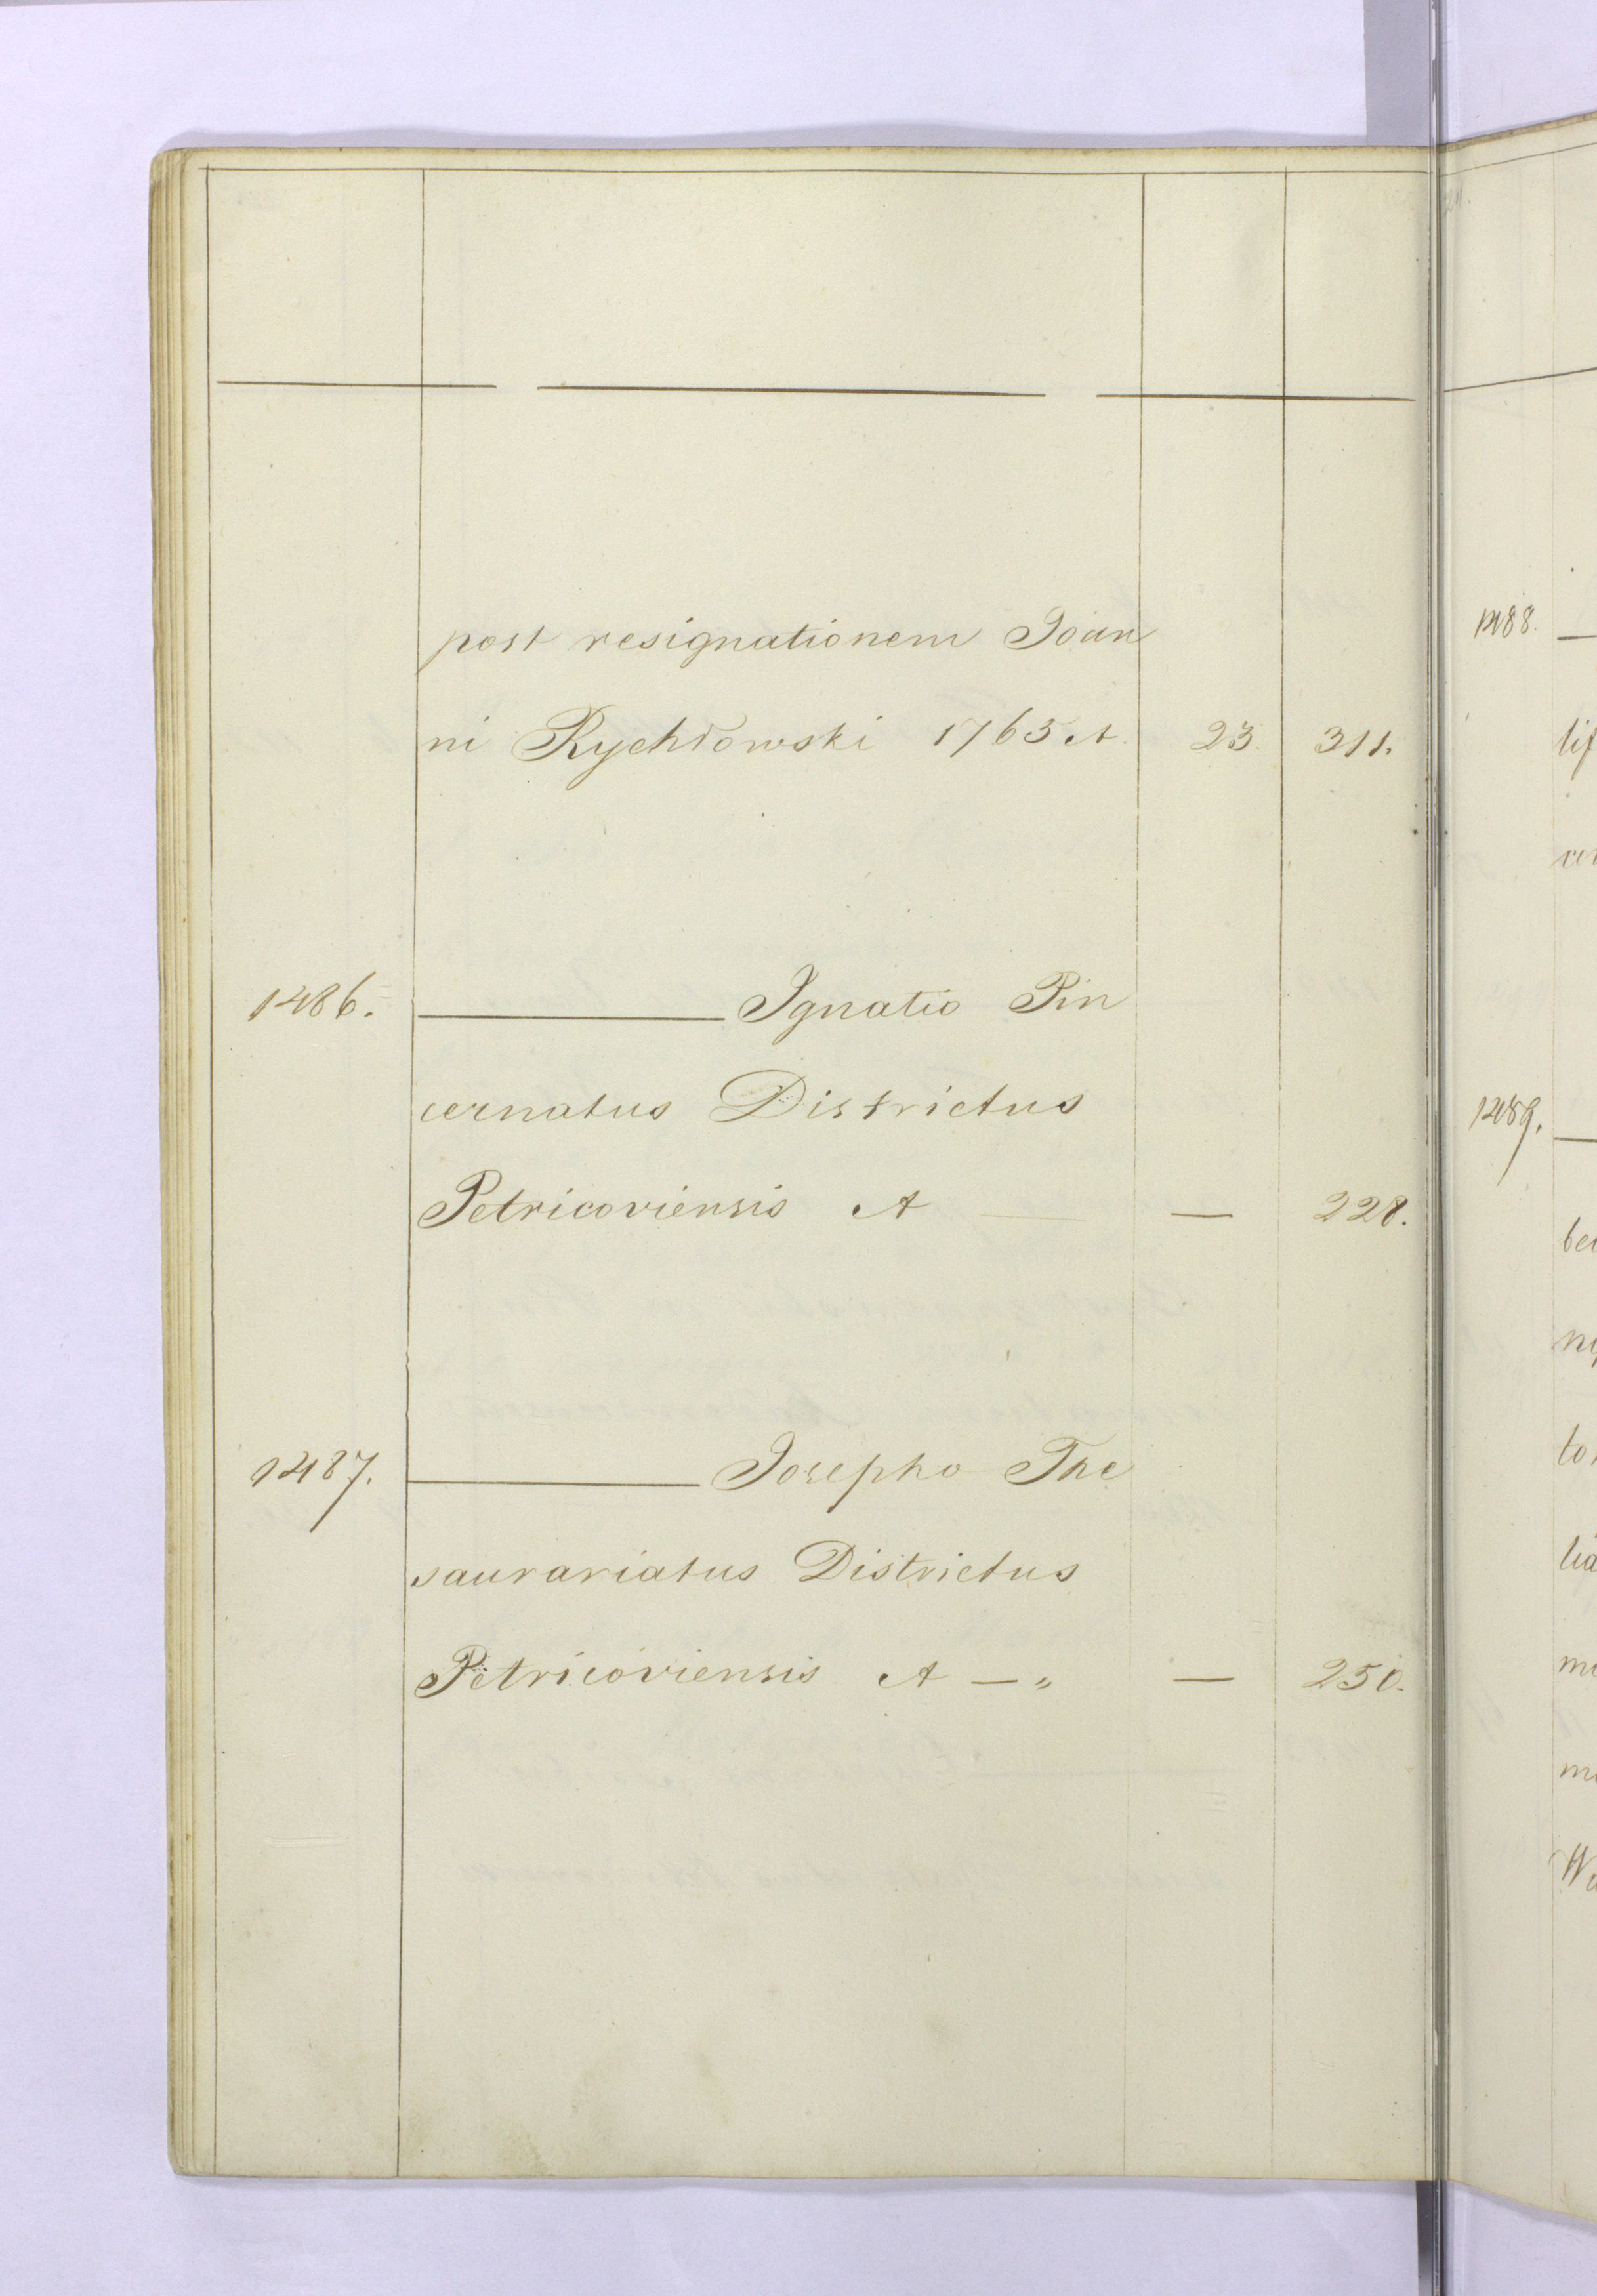 post resignationem Joan
ni Rychłowski 1765 A. 23. 311.
1486. ———— Ignatio Pin
cernatus Districtus
Petricoviensis A — — 228.
1487. ———— Josepho The
saurariatus Districtus
Petricoviensis A — „ — 250.
1488.
lif
1489.
bei
to
lia